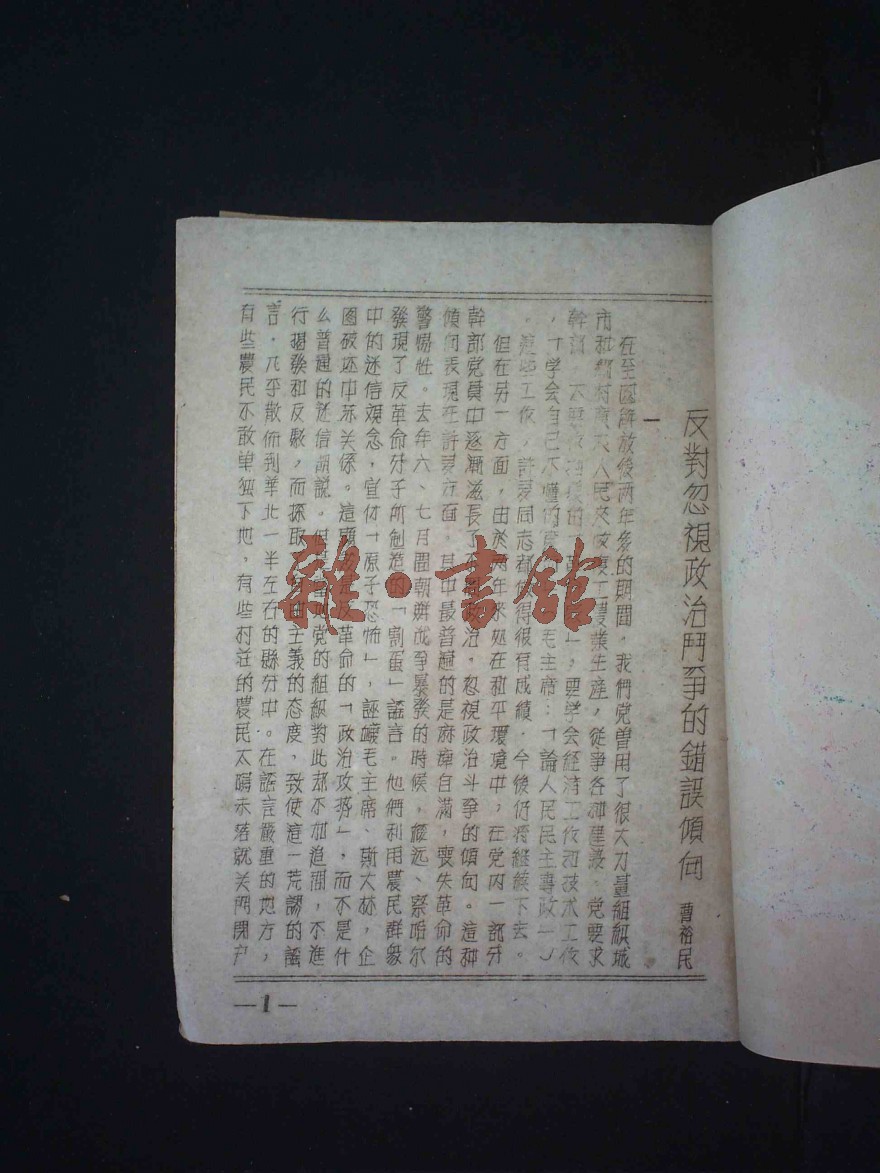 反對忽視政治鬥爭的錯誤傾向 曹裕民
一
在全國解放後两年多的期間，我們党曾用了很大力量組織城
市和鄉村廣大人民來恢復工農業生產，從事各种建設．党要求
幹部，「要學会經濟工作和技术工作
，「学会自己不懂的毛主席：「論人民民主專政」）
．這些工作，許多同志都作得很有成績．今後仍將繼續下去。
但在另一方面，由於两年來处在和平環境中，在党内一部分
幹部党員中逐漸滋長了政治，忽視政治斗爭的傾向。這种
傾向表現在許多方面，其中最普遍的是麻痺自滿，喪失革命的
警惕性。去年六、七月間朝鮮战爭暴發的時候，綏远、察哈尔
發現了反革命分子所創造的「割蛋」謠言。他們利用農民群眾
中的迷信观念，宣傳「原子恐怖」，誣衊毛主席、斯大林，企
图破坏中苏关係。這顯反革命的「政治攻势」，而不是什
么普通的迷信胡說。但党的組織對此却不加追問，不進
行揭發和反駁，而採取自由主義的态度，致使這一荒謬的謠
言．几乎散佈到華北一半左右的縣分中。在謠言嚴重的地方，
有些農民不敢单独下地，有些村莊的農民太陽未落就关門閉户
—1—
雜·書館